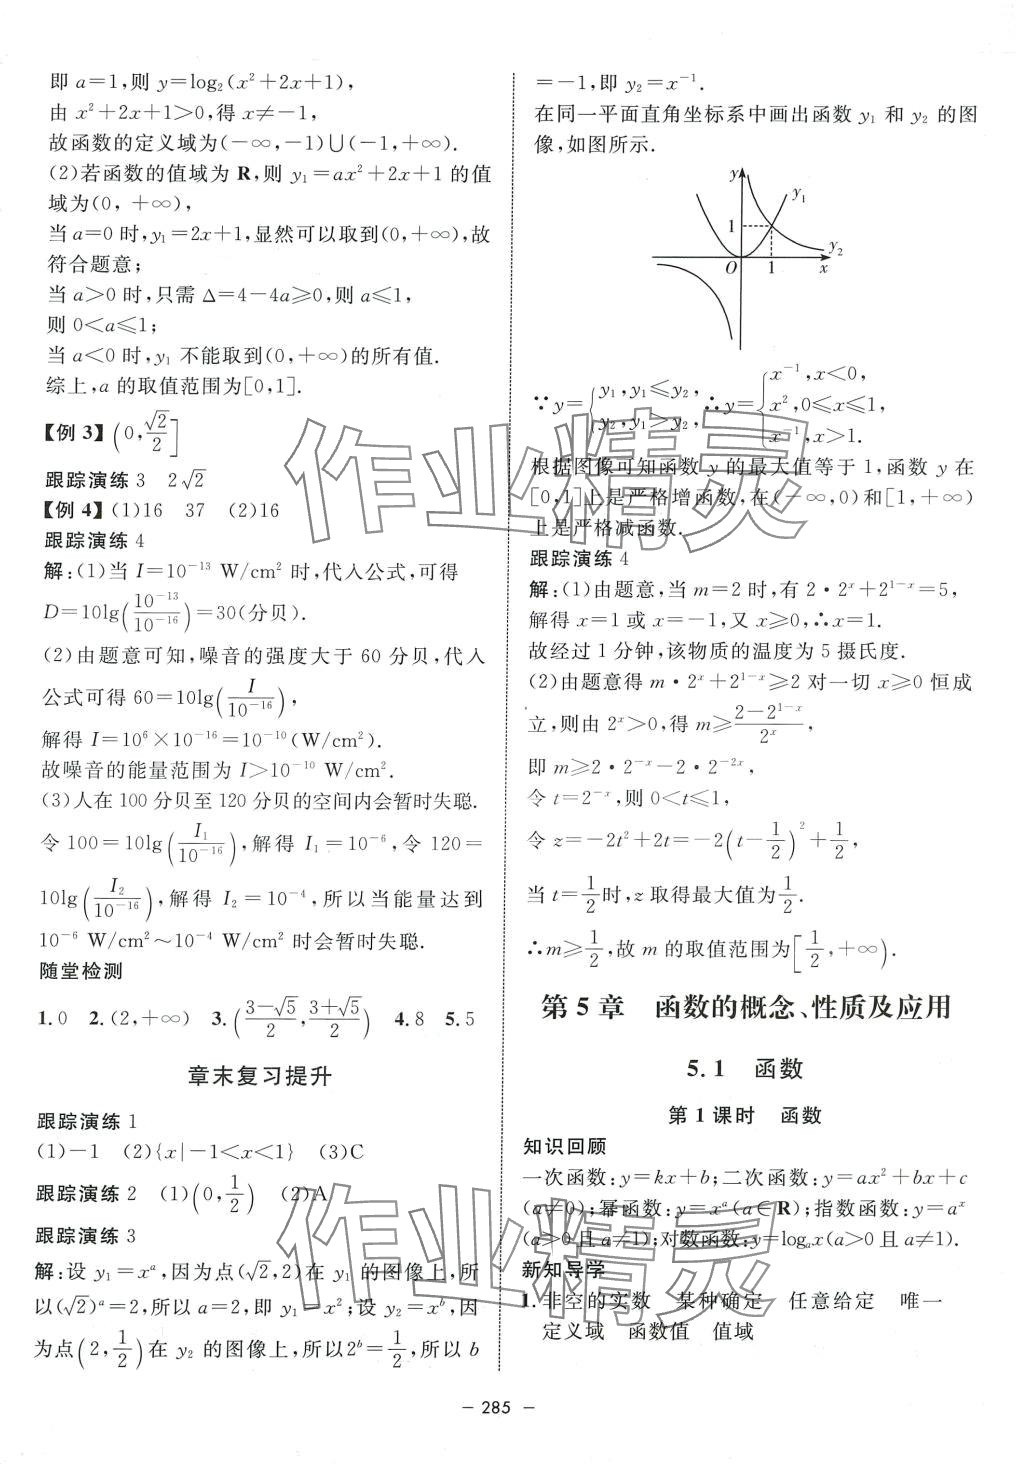 即 a=1,则 y=log₂(x²+2x+1),
由 x²+2x+1>0,得 x≠-1,
故函数的定义域为(-∞,-1)∪(-1,+∞).
(2)若函数的值域为 R,则 y₁=ax²+2x+1 的值
域为(0,+∞),
当 a=0 时,y₁=2x+1,显然可以取到(0,+∞),故
符合题意;
当 a>0 时,只需 Δ=4-4a≥0,则 a≤1,
则 0<a≤1;
当 a<0 时,y₁ 不能取到(0,+∞)的所有值.
综上,a 的取值范围为[0,1].
【例 3】(0,√2/2]
跟踪演练 3 2√2
【例 4】(1)16 37 (2)16
跟踪演练 4
解:(1)当 I=10⁻¹³ W/cm² 时,代入公式,可得
D=10lg(10⁻¹³/10⁻¹⁶)=30(分贝).
(2)由题意可知,噪音的强度大于 60 分贝,代入
公式可得 60=10lg(I/10⁻¹⁶),
解得 I=10⁶×10⁻¹⁶=10⁻¹⁰(W/cm²).
故噪音的能量范围为 I>10⁻¹⁰ W/cm².
(3)人在 100 分贝至 120 分贝的空间内会暂时失聪.
令 100=10lg(I₁/10⁻¹⁶),解得 I₁=10⁻⁶,令 120=
10lg(I₂/10⁻¹⁶),解得 I₂=10⁻⁴,所以当能量达到
10⁻⁶ W/cm²~10⁻⁴ W/cm² 时会暂时失聪.
随堂检测
1.0 2.(2,+∞) 3.((3-√5)/2,(3+√5)/2) 4.8 5.5
章末复习提升
跟踪演练 1
(1)-1 (2){x|-1<x<1} (3)C
跟踪演练 2 (1)(0,1/2) (2)A
跟踪演练 3
解:设 y₁=xᵃ,因为点(√2,2)在 y₁ 的图像上,所
以(√2)ᵃ=2,所以 a=2,即 y₁=x²;设 y₂=xᵇ,因
为点(2,1/2)在 y₂ 的图像上,所以2ᵇ=1/2,所以 b
=-1,即 y₂=x⁻¹.
在同一平面直角坐标系中画出函数 y₁ 和 y₂ 的图
像,如图所示.
y
y₁
1
y₂
O 1 x
∵y={y₁,y₁≤y₂, y₂,y₁>y₂, ∴y={x⁻¹,x<0, x²,0≤x≤1, x⁻¹,x>1.
根据图像可知函数 y 的最大值等于 1,函数 y 在
[0,1]上是严格增函数,在(-∞,0)和[1,+∞)
上是严格减函数.
跟踪演练 4
解:(1)由题意,当 m=2 时,有 2·2ˣ+2¹⁻ˣ=5,
解得 x=1 或 x=-1,又 x≥0,∴x=1.
故经过 1 分钟,该物质的温度为 5 摄氏度.
(2)由题意得 m·2ˣ+2¹⁻ˣ≥2 对一切 x≥0 恒成
立,则由 2ˣ>0,得 m≥(2-2¹⁻ˣ)/2ˣ,
即 m≥2·2⁻ˣ-2·2⁻²ˣ,
令 t=2⁻ˣ,则 0<t≤1,
令 z=-2t²+2t=-2(t-1/2)²+1/2,
当 t=1/2时,z 取得最大值为1/2.
∴m≥1/2,故 m 的取值范围为[1/2,+∞).
第 5 章 函数的概念、性质及应用
5.1 函数
第 1 课时 函数
知识回顾
一次函数:y=kx+b;二次函数:y=ax²+bx+c
(a≠0);幂函数:y=xᵃ(a∈R);指数函数:y=aˣ
(a>0 且 a≠1);对数函数:y=logₐx(a>0 且 a≠1).
新知导学
1.非空的实数 某种确定 任意给定 唯一
定义域 函数值 值域
- 285 -
作业精灵
作业精灵